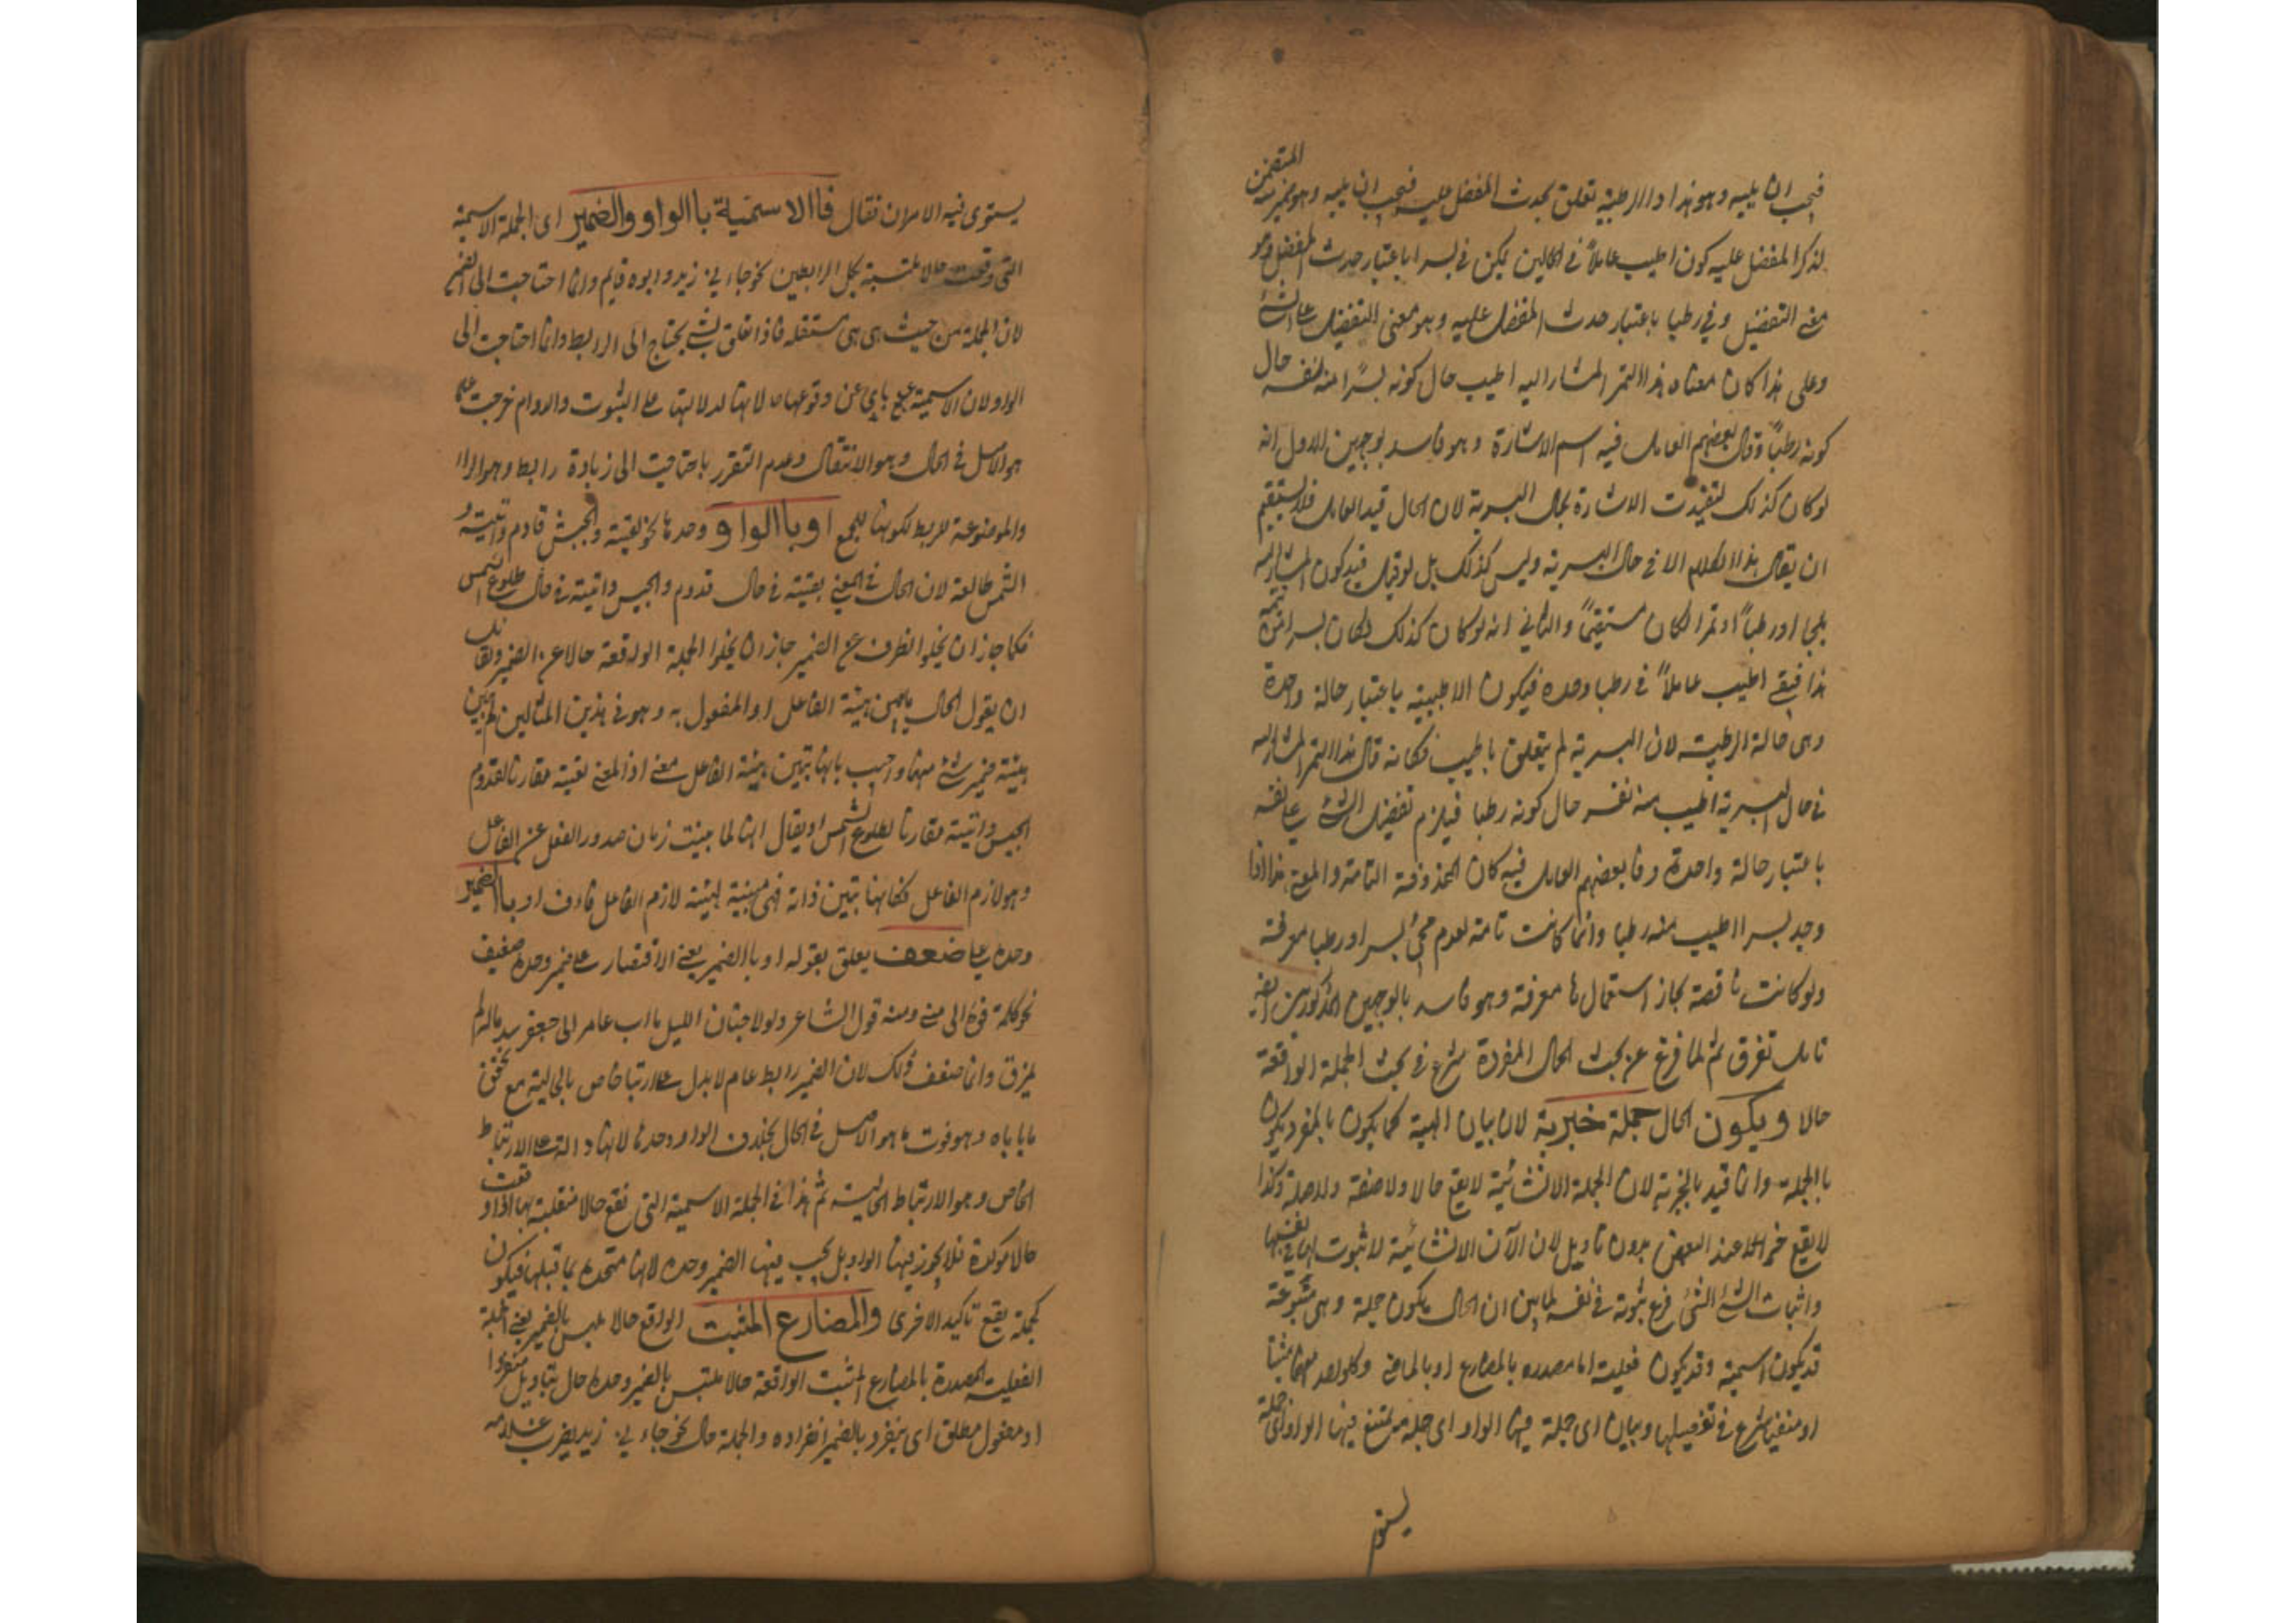 فيجب ان يليه وهو هذا والرطبية تعلق بحدث المفضل عليه فيجب ان يليه وهو ضمير منه المتضمن
لذكر المفضل عليه كون اطيب عاملاً في الحالين ليكن في بسرا باعتبار حدث المفضل وهو
معنى التفضيل وفي رطبا باعتبار حدث المفضل عليه وهو معنى التفضيل
وعلى هذا كان معناه هذا التمر المشار اليه اطيب حال كونه بسرًا منه نفسه حال
كونه رطباً وقال بعضهم العامل فيه اسم الاشارة وهو فاسد بوجهين الاول انه
لو كان كذلك لتقيدت الاشارة بحال البسرية لان الحال قيد العامل فلا يستقيم
ان يقال هذا الكلام الا في حال البسرية وليس كذلك بل لو قيل فيه كون المشار اليه
بلحا او رطباً او تمرا لكان مستقيماً والثاني انه لو كان كذلك لكان بسرا
هذا فبقي اطيب عاملاً في رطبا وحده فيكون الاطيبية باعتبار حالة واحدة
وهى حالة الرطبية لان البسرية لم يتعلق باطيب فكانه قال هذا التمر المشار اليه
في حال البسرية اطيب منه نفسه حال كونه رطبا فيلزم تفضيل الشئ على نفسه
باعتبار حالة واحدة وقا بعضهم العامل فيه كان المحذوفة التامة والمعنى هذا اذا
وجد بسرا اطيب منه رطبا وانما كانت تامة لعدم مجئ بسرا ورطبا معرفة
ولو كانت ناقصة لجاز استعمالها معرفة وهو فاسد بالوجهين المذكورين
تامل تفرق ثم لما فرغ عن بحث الحال المفردة شرع في بحث الجملة الواقعة
حالا ويكون الحال جملة خبرية لان بيان الهيئة كما يكون بالمفرد يكون
باالجملة وانما قيد بالخبرية لان الجملة الانشائية لا يقع حالا ولا صفة ولا صلة وكذا
لا يقع خبرا عند البعض بدون تاويل لان الانشائية لا ثبوت لها في نفسها
واثبات الشئ الشئ فرع ثبوته في نفسه لما بين ان الحال يكون جملة وهى متنوعة
قد يكون اسمية وقد يكون فعلية اما مصدره بالمضارع او بالماضي
او منفيا شرع في تفصيلها وبيان اى جملة فيها الواو اى جملة يمتنع فيها الواو اى جملة
يستوى
يستوى فيه الامران فقال فاالاسمية باالواو والضمير اى الجملة الاسمية
التى وقعت حالا ملتبسة بكل الرابطين نحو جاءنى زيد وابوه قايم وانما احتاجت الى الضمير
لان الجملة من حيث هى هى مستقلة فاذا تعلق بشئ يحتاج الى الرابط وانما احتاجت الى
الواو لان الاسمية عن وقوعها حالا لانها لدلالتها على الثبوت والدوام خرجت عما
هو الاصل في الحال وهو الانتقال وعدم التقرر باحتاجت الى زيادة رابط وهو الواو
والموضوعة للربط لكونها للجمع او باالواو وحدها نحو لقيته والجيش قادم واتيته و
الشمس طالعة لان الحال في المعنى لقيته في حال قدوم والجيش واتيته في حال طلوع الشمس
فكما جاز ان يخلو الظرف عن الضمير جاز ان يخلوا الجملة الواقعة حالا عن الضمير ولقائل
ان يقول الحال ما يبين هيئة الفاعل او المفعول به وهو في هذين المثالين لم يبين
هيئة ضمير شئ منهما واجيب بانها تبين هيئة الفاعل معنى اذ المعنى لقيته مقارنا لقدوم
الجيش واتيته مقارنا لطلوع الشمس او يقال انها لما بينت زمان صدور الفعل عن الفاعل
وهو لازم الفاعل فكانها تبين ذاته فهى مبينة لهيئة لازم الفاعل فاعرف او باالضمير
وحده على ضعف يعلق بقوله او باالضمير يعنى الاقتصار على ضمير وحده ضعيف
نحو كلمته فوه الى في ومنه قول الشاعر ولولا جنان الليل ما اب عامر الى جعفر سرباله لم
يمزق وانما ضعف ذلك لان الضمير رابط عام لا يدل على ارتباط خاص بالحالية مع تحقق
ما ياباه وهو فوت ما هو الاصل في الحال بخلاف الواو وحدها لانها دالة على الارتباط
الخاص وهو الارتباط الحالية ثم هذا في الجملة الاسمية التى تقع حالا منتقلة اما اذا وقعت
حالا موكدة فلا يجوز فيها الواو بل يجب فيها الضمير وحده لانها متحدة بما قبلها فيكون
كجملة يقع تاكيد الاخرى والمضارع المثبت الواقع حالا ملتبس بالضمير يعنى الجملة
الفعلية المصدرة بالمضارع المثبت الواقعة حالا ملتبس بالضمير وحده حال بتاويل منفردا
او مفعول مطلق اى ينفرد بالضمير انفراده والجملة حال نحو جاءنى زيد يضرب غلامه